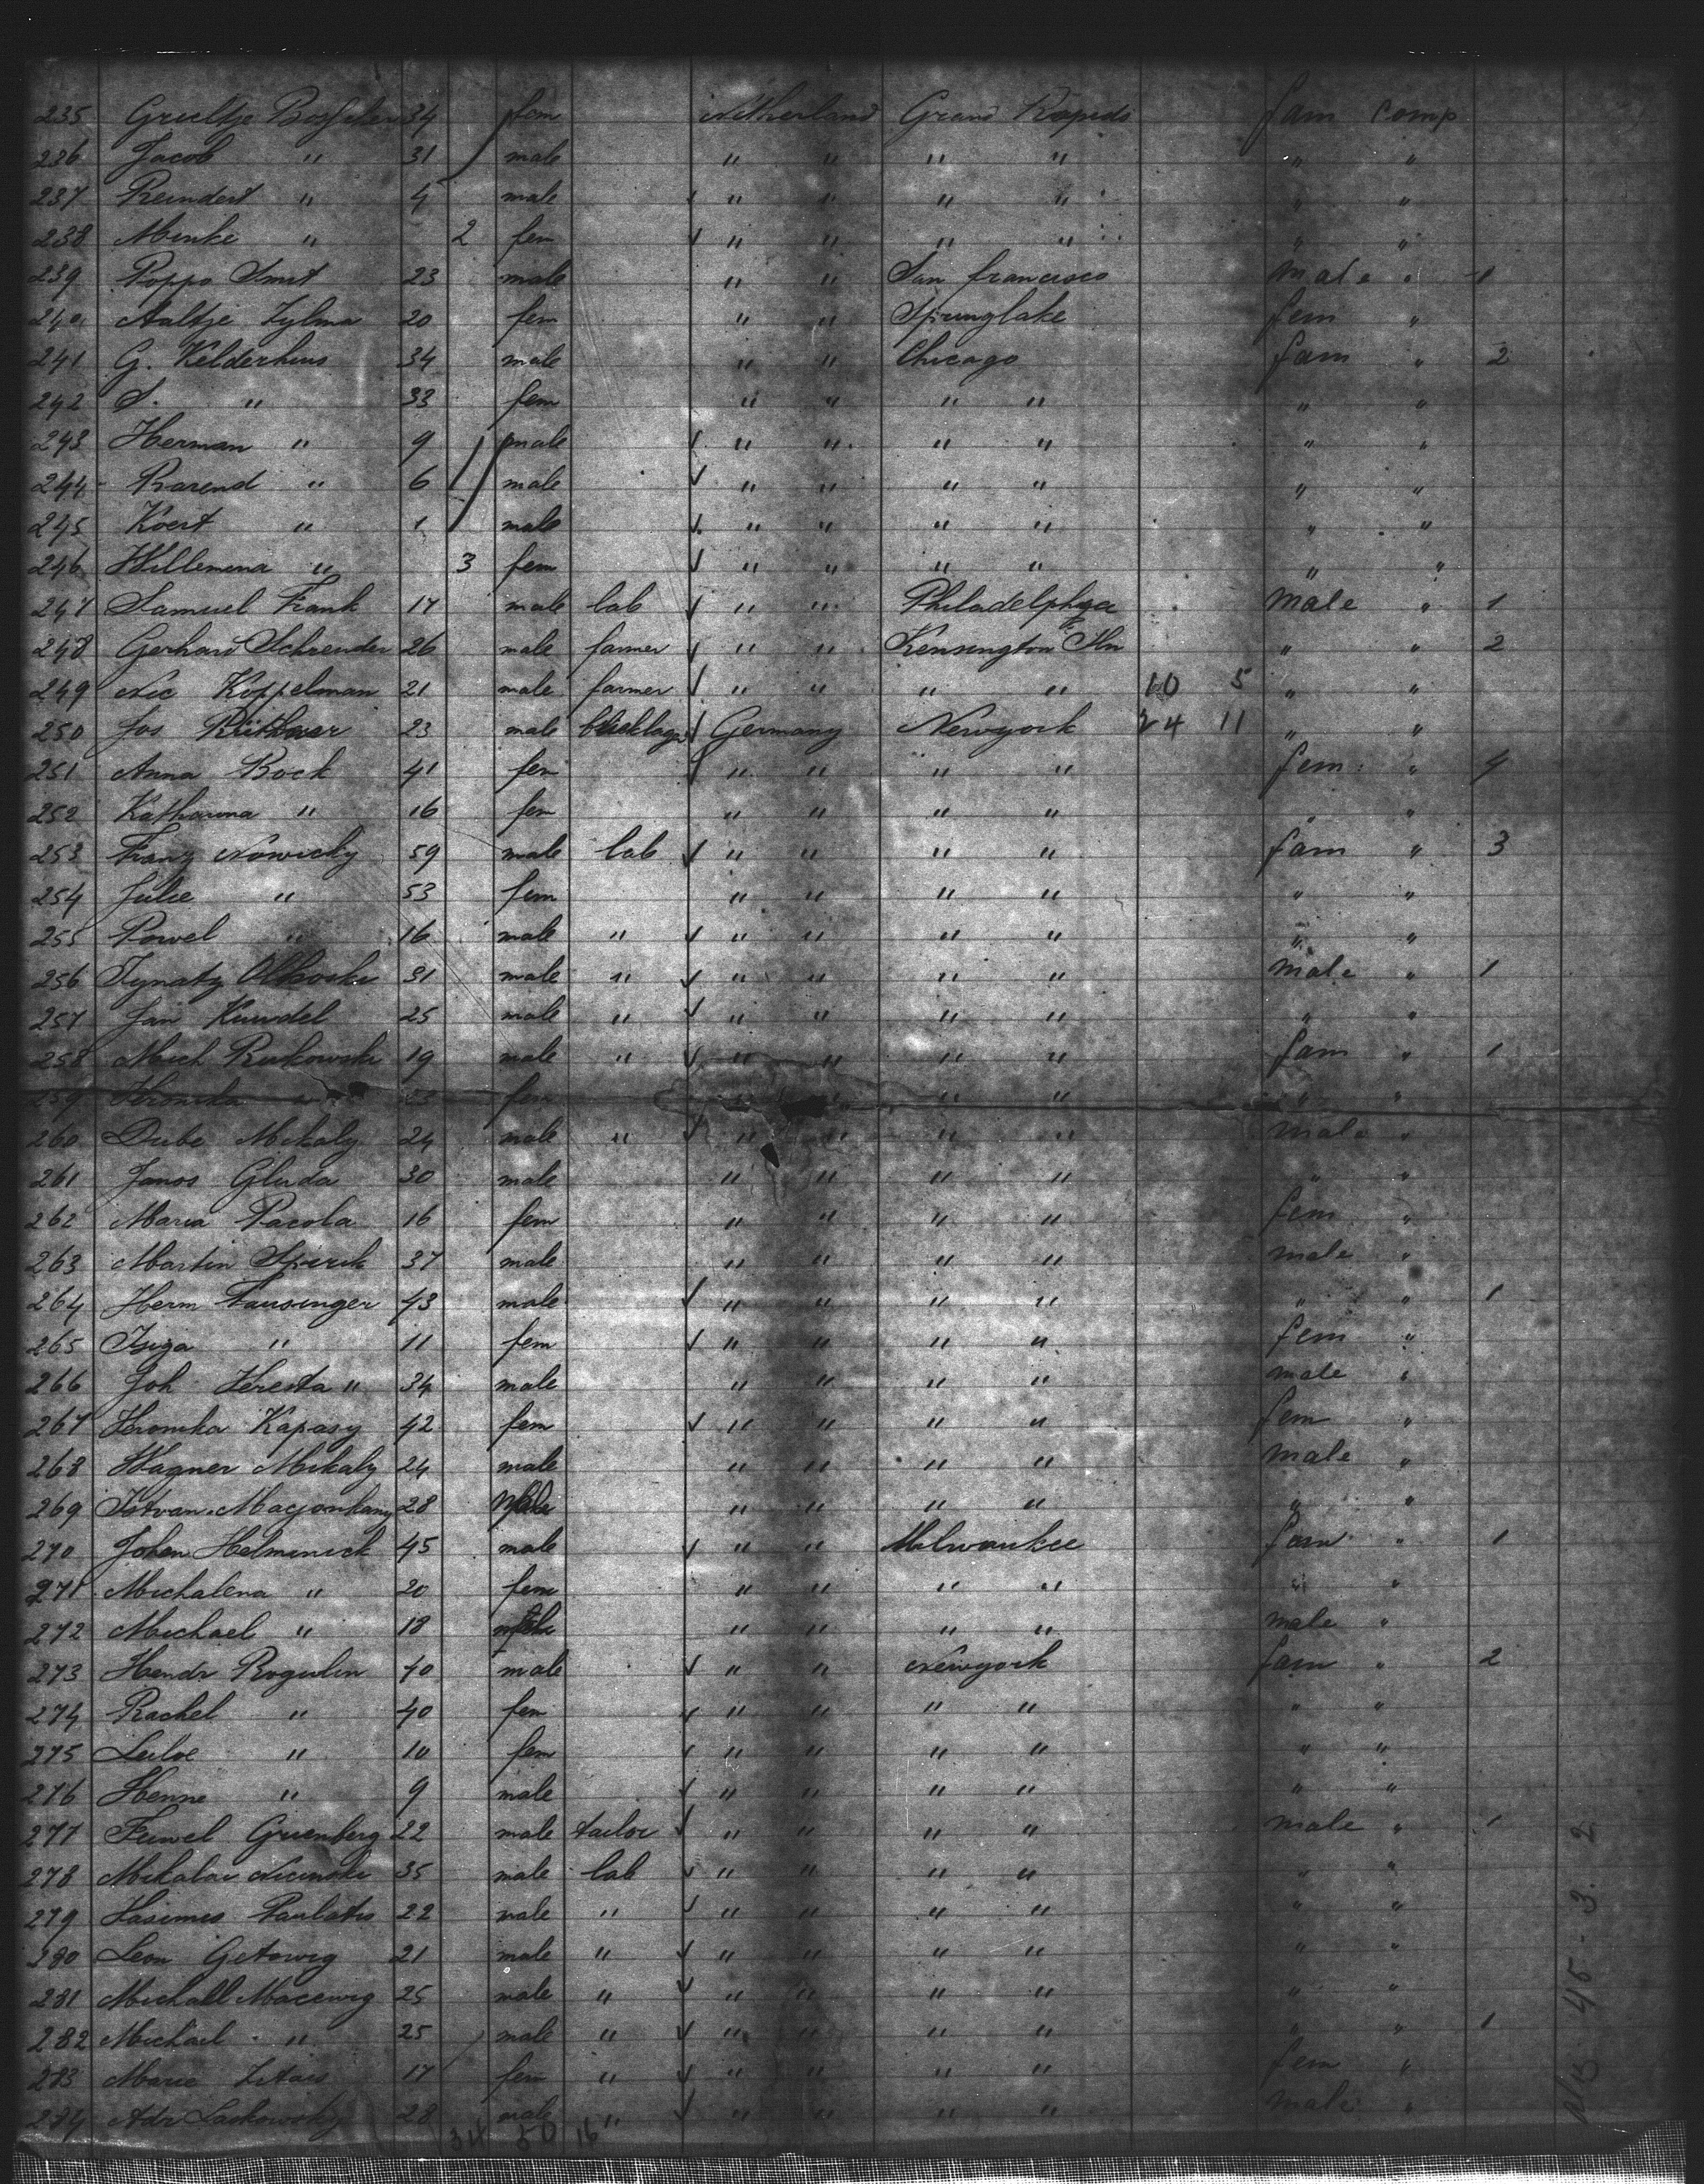 235 Grieltje 34 fem Netherland Grand Rapids fam comp
236 Jacob " 31 male " " " " " "
237 Reindert " 4 male " " " " " "
238 Menke " 2 fem " " " " " "
239 Poppo Smit 23 male " " San francisco male " 1
240 Aaltje Zylma 20 fem " " Springlake fem "
241 G. Kelderhuis 34 male " " Chicago fam " 2
242 S. " 33 fem " " " " " "
243 Herman " 9 male " " " " " "
244 Barend " 6 male " " " " " "
245 Koert " 1 male " " " " " "
246 Willemena " 3 fem " " " " " "
247 Samuel Frank 17 male lab " " Philadelphya male " 1
248 Gerhard Schreuder 26 male farmer " " Kensington Illn " " 2
249 Nic Koppelman 21 male farmer " " " " 10 5 " "
250 Jos 23 male Germany Newyork 24 11 " "
251 Anna Bock 41 fem " " " " fem " 4
252 Katharina " 16 fem " " " " " "
253 Franz Nowicky 59 male lab " " " " fam " 3
254 Julie " 53 fem " " " " " "
255 Powel " 16 male " " " " " " "
256 Ignatz 31 male " " " " " male " 1
257 Jan Kundel 25 male " " " " " " "
258 Mich Rukowski 19 male " " " " " fam " 1
259 " fem " " " " " "
260 Dube Mihaly 24 male " " " " " male "
261 Janos Gluda 30 male " " " " " "
262 Maria Pacola 16 fem " " " " fem "
263 Martin 37 male " " " " male "
264 Herm Tausinger 43 male " " " " " " 1
265 " 11 fem " " " " fem "
266 Joh Veresta " 34 male " " " " male "
267 Veronika Kapasy 42 fem " " " " fem "
268 Wagner Mihaly 24 male " " " " male "
269 Istvan 28 male " " " " " "
270 Johan Helminick 45 male " " Milwaukee fam " 1
271 Michalena " 20 fem " " " " " "
272 Michael " 18 male " " " " male "
273 Hendr Rogulin 40 male " " Newyork fam " 2
274 Rachel " 40 fem " " " " " "
275 " 10 fem " " " " " "
276 Henne " 9 male " " " " " "
277 Gruenberg 22 male tailor " " " " male " 1
278 Mikalai 35 male lab " " " " " "
279 22 male " " " " " " "
280 Leon 21 male " " " " " " "
281 Michall Macewig 25 male " " " " " " "
282 Michael " 25 male " " " " " " " 1
283 Marie 17 fem " " " " " fem "
284 Adr Laskowsky 28 male " " " " " male "
34 50 16